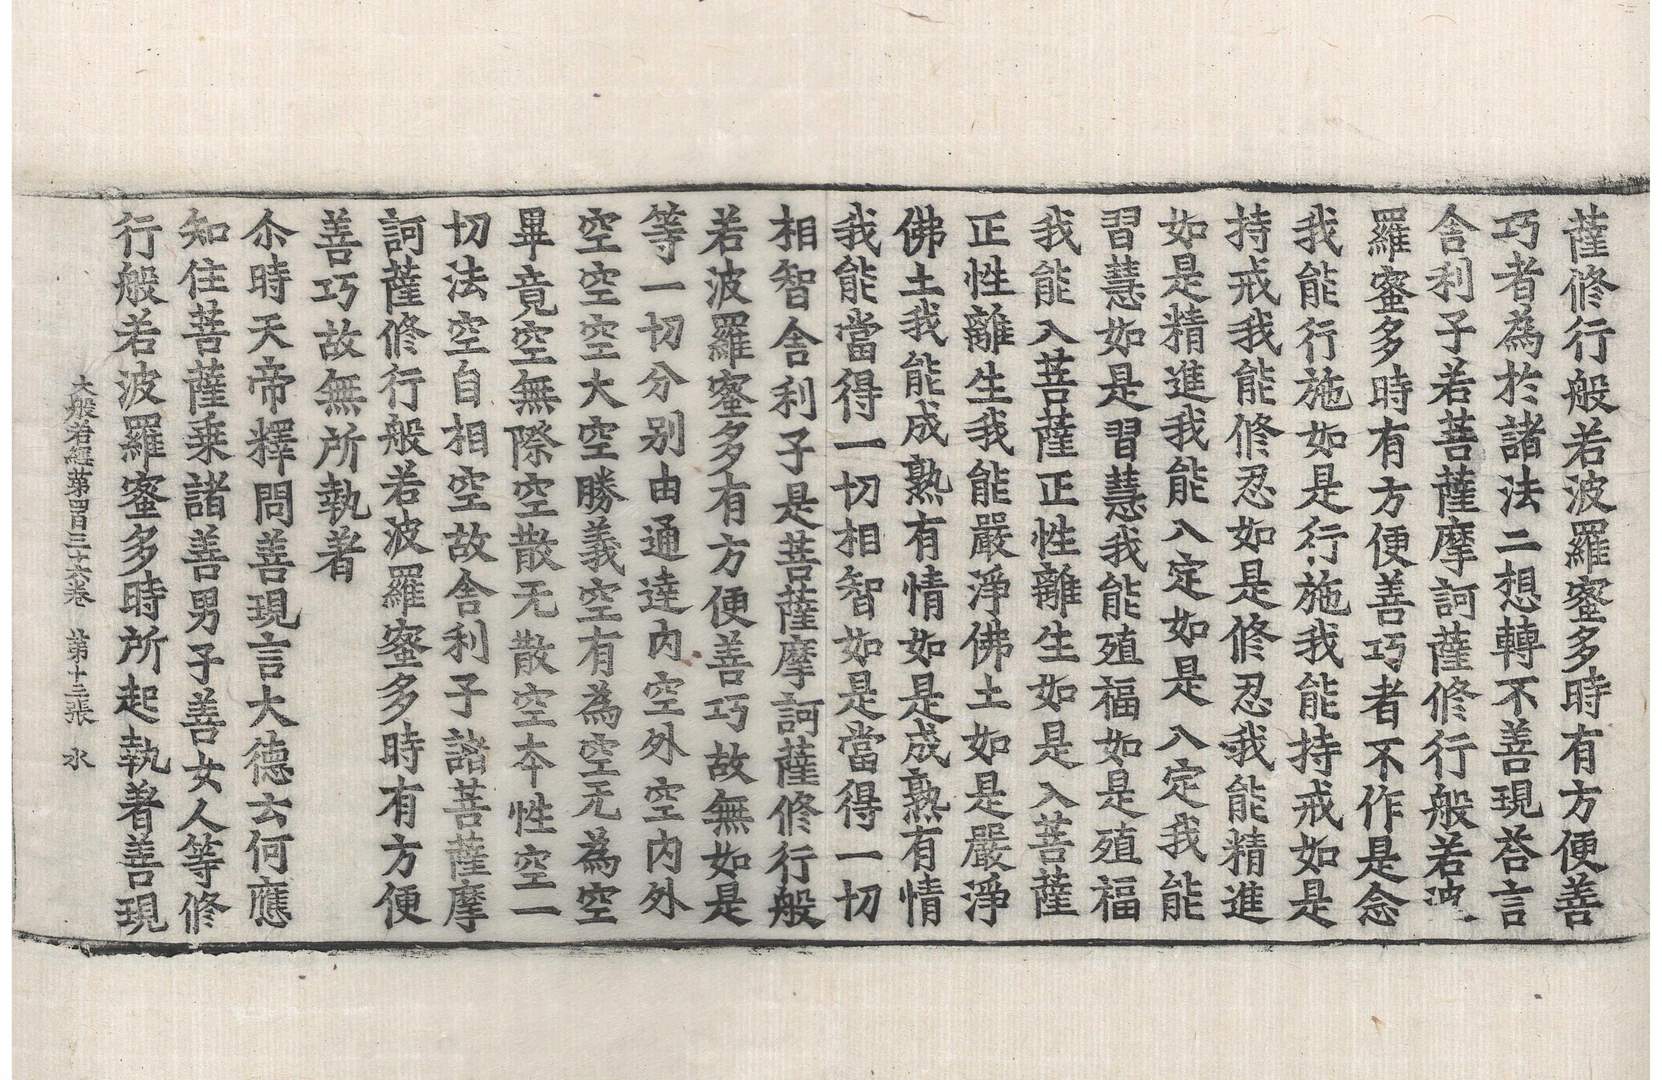 薩修行般若波羅蜜多時有方便善
巧者為於諸法二想轉不善現荅言
舍利子若菩薩摩訶薩修行般若波
羅蜜多時有方便善巧者不作是念
我能行施如是行施我能持戒如是
持戒我能修忍如是修忍我能精進
如是精進我能入定如是入定我能
習慧如是習慧我能殖福如是殖福
我能入菩薩正性離生如是入菩薩
正性離生我能嚴淨佛土如是嚴淨
佛土我能成熟有情如是成熟有情
我能當得一切相智如是當得一切
相智舍利子是菩薩摩訶薩修行般
若波羅蜜多有方便善巧故無如是
等一切分別由通達內空外空內外
空空空大空勝義空有為空无為空
畢竟空無際空散无散空本性空一
切法空自相空故舍利子諸菩薩摩
訶薩修行般若波羅蜜多時有方便
善巧故無所執著
尒時天帝釋問善現言大德云何應
知住菩薩乘諸善男子善女人等修
行般若波羅蜜多時所起執著善現
大般若經第四百三十六卷 第十三張 水